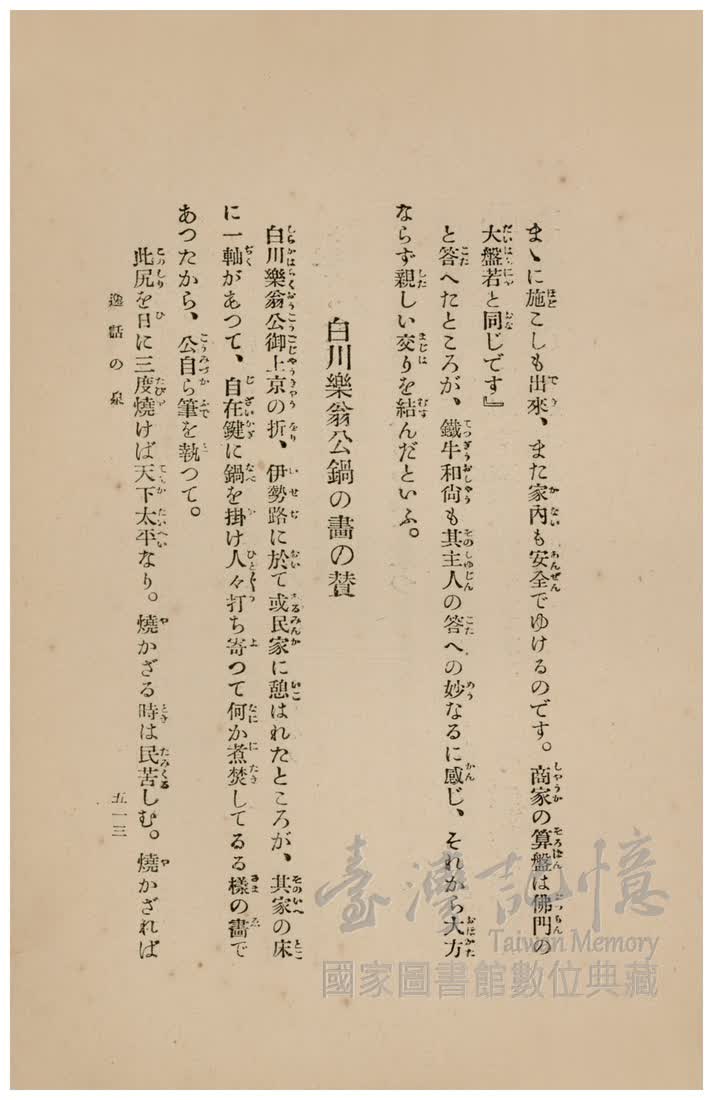 まゝに施こしも出來、また家內も安全でゆけるのです。商家の算盤は佛門の
大盤若と同じです』
と答へたところが、鐵牛和尙も其主人の答への妙なるに感じ、それから大方
ならず親しい交りを結んだといふ。
白川樂翁公鍋の畵の賛
白川樂翁公御上京の折、伊勢路に於て或民家に憩はれたところが、其家の床
に一軸があつて、自在鍵に鍋を掛け人々打ち寄つて何か煮焚してゐる樣の畵で
あつたから、公自ら筆を執つて。
此尻を日に三度燒けば天下太平なり。燒かざる時は民苦しむ。燒かざれば
逸話の泉
五一三
臺灣記憶
Taiwan Memory
國家圖書館數位典藏